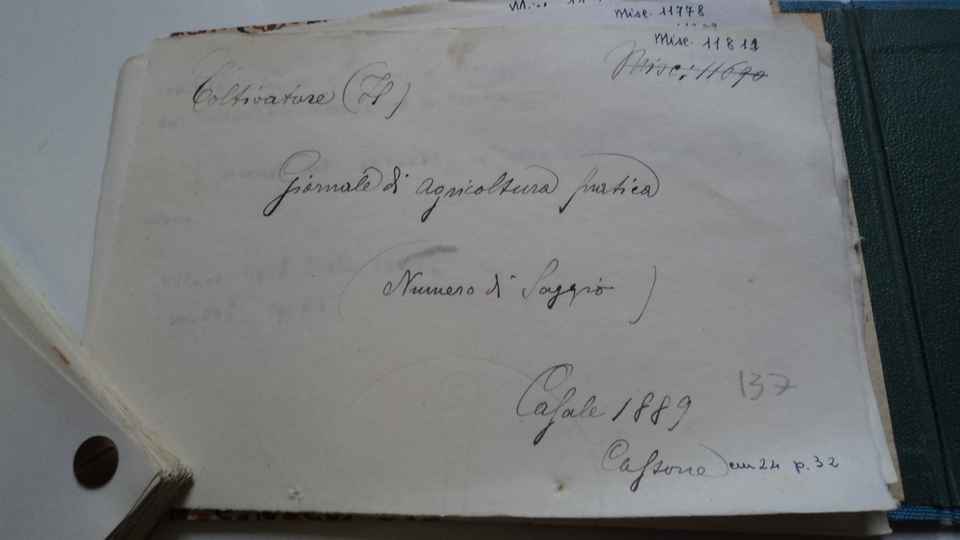 Misc. 11778
Misc. 11819
Misc. 11690
Coltivatore (Il)
Giornale di agricoltura pratica
(Numero di Saggio)
Casale 1889
137
cm 24 p. 32